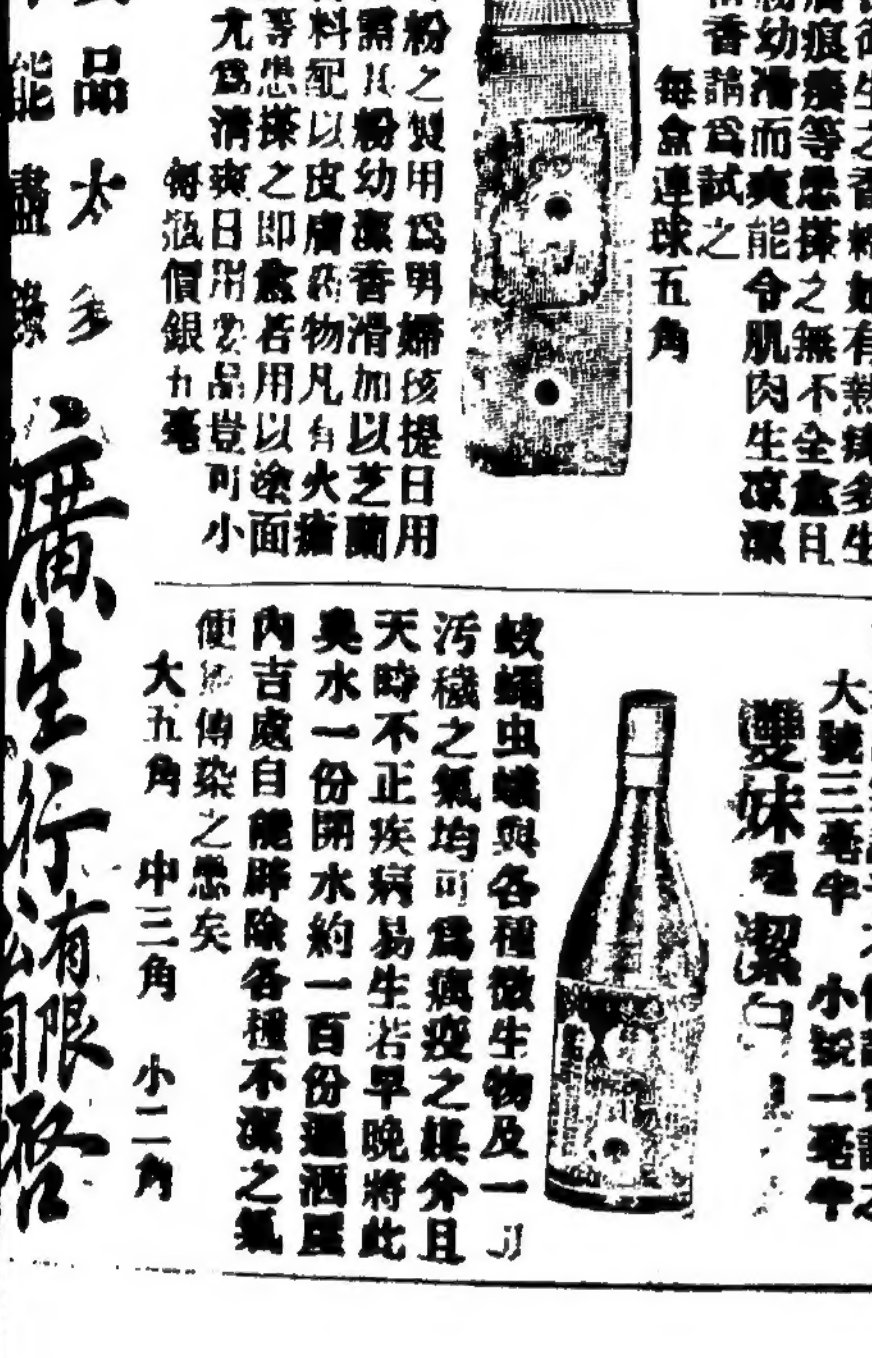 生之香粉如有熱痱多生
痕癢等患搽之無不全愈且
幼滑而爽能令肌肉生凉潔
香請爲試之
每盒連球五角
粉之製用爲男婦孩提日用
其粉幼潔香滑加以芝蘭
料配以皮膚藥物凡有火瘡
等患搽之即愈若用以塗面
尤爲清爽日用之品豈可小
每瓶價銀五毫
品太多
能盡錄
大號三毫半 小號一毫半
雙妹嘜潔白
蚊蠅虫蟻與各種微生物及一切
汚穢之氣均可爲癘疫之媒介且
天時不正疾病易生若早晚將此
臭水一份開水約一百份遍洒屋
內吉處自能辟除各種不潔之氣
便無傳染之患矣
大五角 中三角 小二角
廣生行有限公司啓